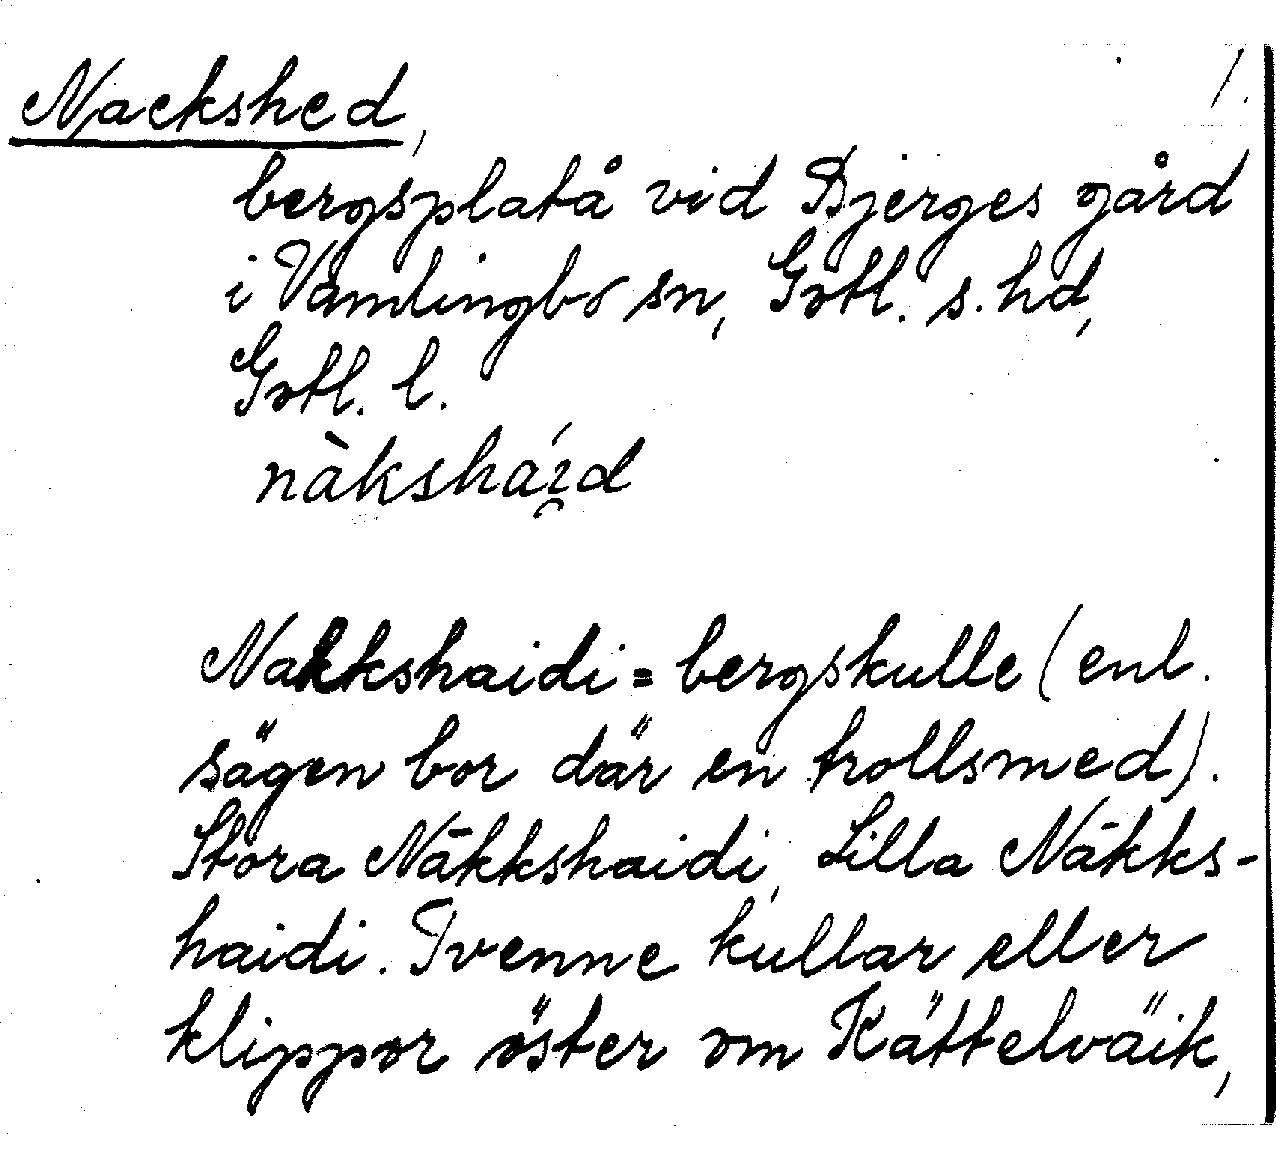 1.
Nackshed,
bergsplatå vid Bjerges gård
i Vamlingbo sn, Gotl. s. hd,
Gotl. l.
Nakkshaidi = bergskulle (enl.
sägen bor där en trollsmed).
Stora Näkkshaidi, Lilla Näkks-
haidi. Tvenne kullar eller
klippor öster om Kättelväik,